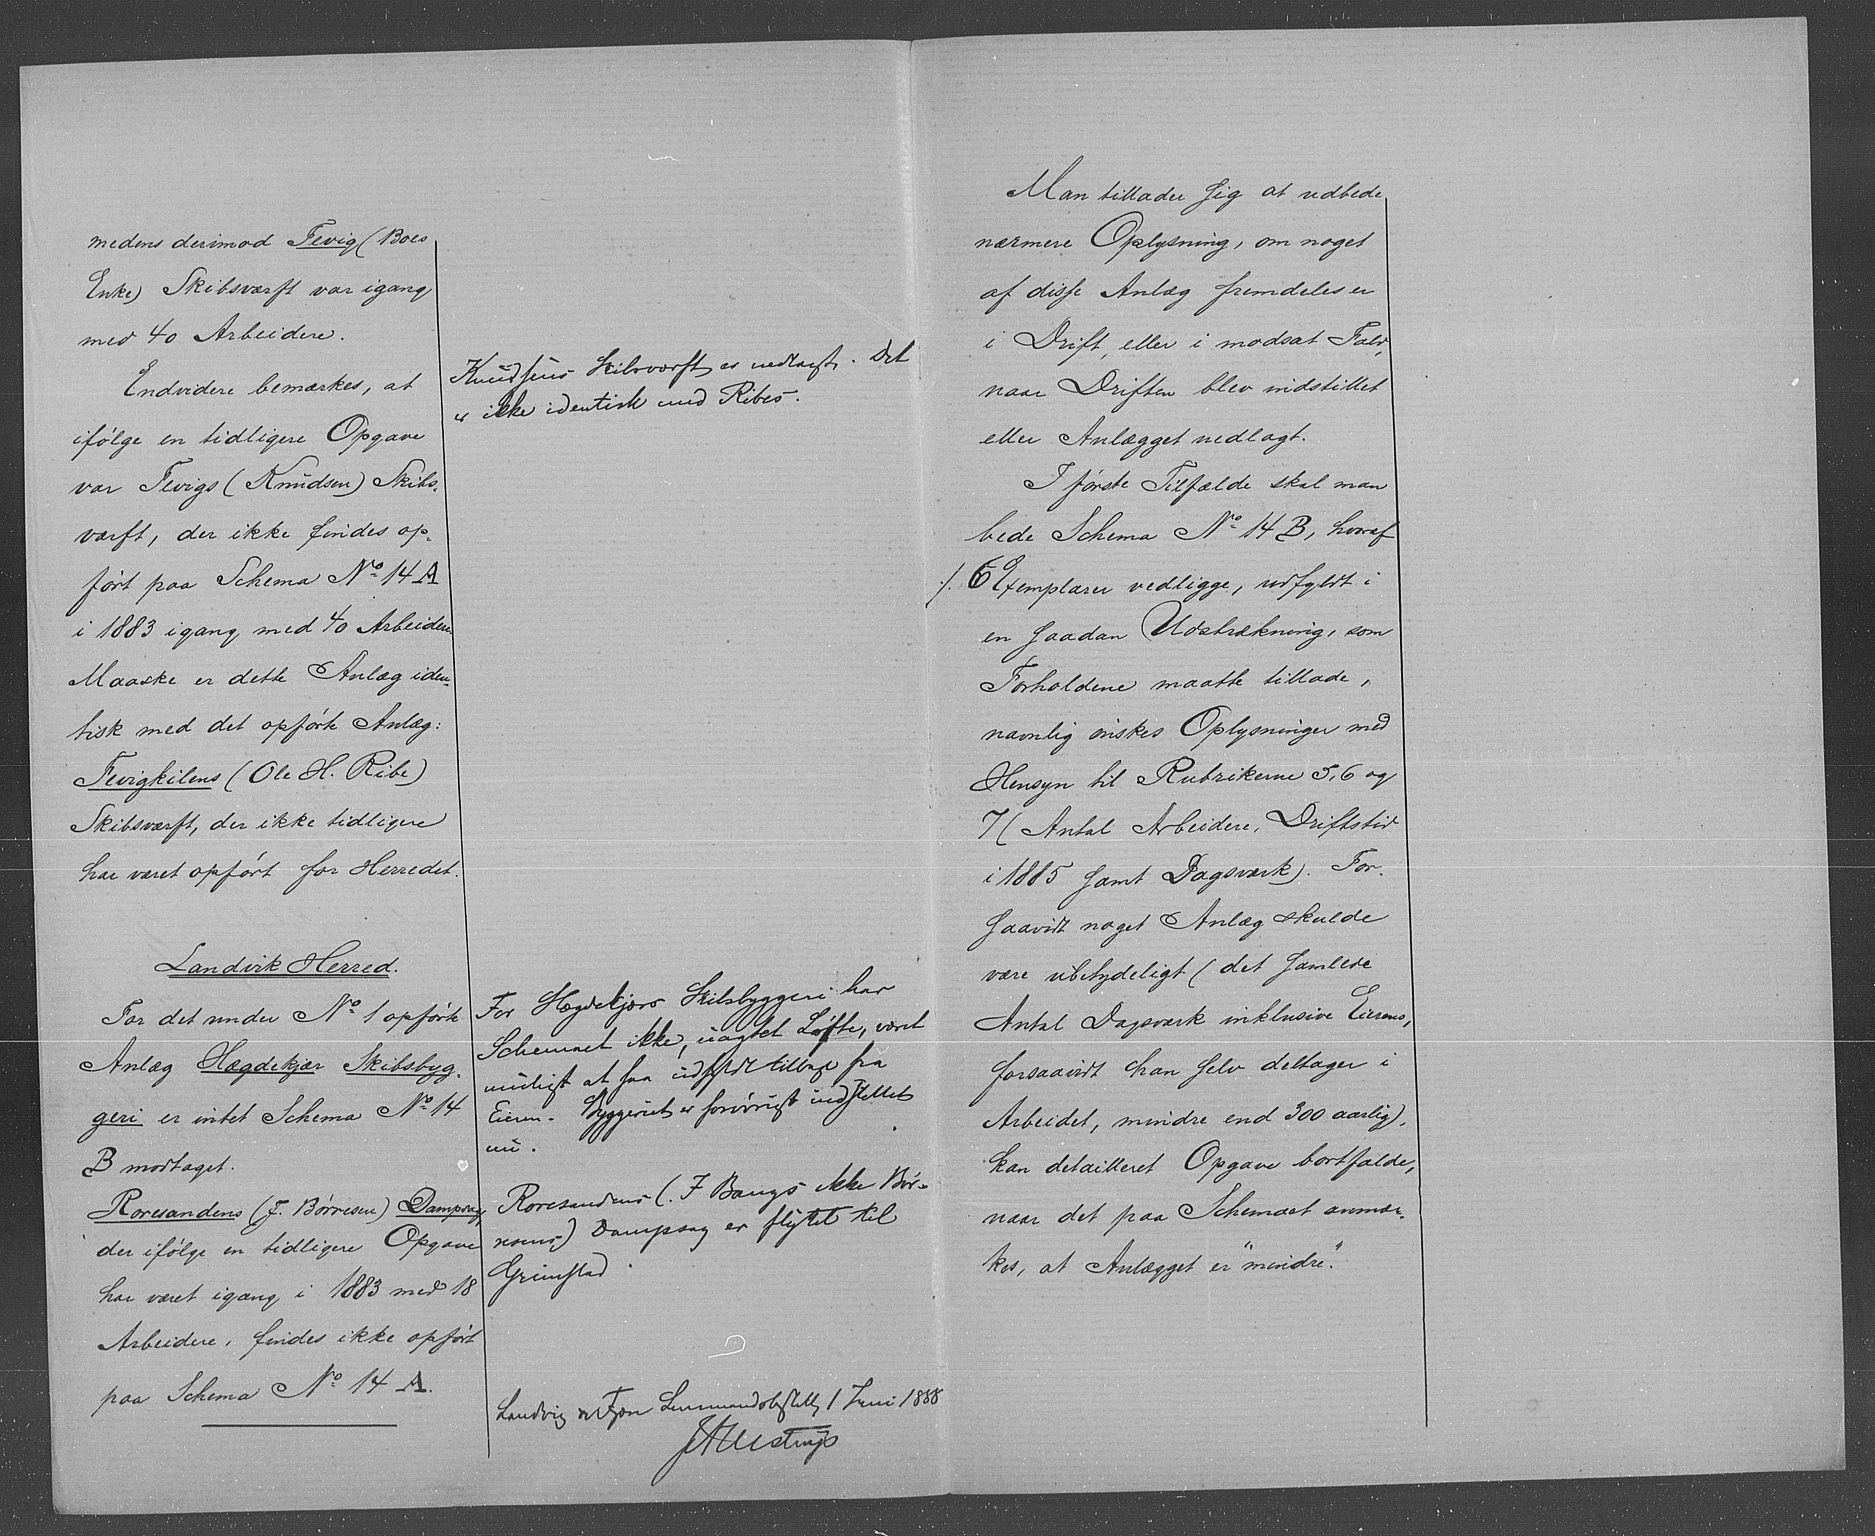 medens derimod Fevig (Boes
Enke) Skibsværft var igang
med 40 Arbeidere.
Endvidere bemærkes, at
ifølge en tidligere Opgave
var Fevigs (Knudsen) Skibs-
værft, der ikke findes op-
ført paa Schema No 14 A
i 1883 igang med 40 Arbeidere
Maaske er dette Anlæg iden-
tisk med det opførte Anlæg:
Fevigkilens (Ole H. Ribe)
Skibsværft, der ikke tidligere
har været opført for Herredet.
Knudsens Skibsværft er nedlagt. Det
er ikke identisk med Ribes.
Landvik Herred.
For det under No 1 opførte
Anlæg Hægdekjær Skibsbyg-
geri er intet Schema No 14
B modtaget.
Roresandens (J. Børresen) Dampsag,
der ifølge en tidligere Opgave
har været igang i 1883 med 18
Arbeidere, findes ikke opført
paa Schema No 14 A.
For Hægdekjærs Skibsbyggeri har
Schemaet ikke, uagtet Løfte, været
muligt at faa udfyldt tilbage fra
Eieren. Byggeriet er forøvrigt indstillet
nu.
Roresandens (J Bangs ikke Bør-
resens) Dampsag er flyttet til
Grimstad.
Landvig Lensmandsbestilling 1 Juni 1888
Man tillader sig at udbede
nærmere Oplysning, om noget
af disse Anlæg fremdeles er
i Drift, eller i modsat Fald,
naar Driften blev indstillet
eller Anlægget nedlagt.
I første Tilfælde skal man
bede Schema No 14 B, hvoraf
./. 6 Exemplarer vedligge, udfyldt i
en saadan Udstrækning, som
Forholdene maatte tillade,
navnlig ønskes Oplysninger med
Hensyn til Rubrikerne 5, 6 og
7 (Antal Arbeidere, Driftstid
i 1885 samt Dagsværk). For-
saavidt noget Anlæg skulde
være ubetydeligt (det samlede
Antal Dagsværk inklusive Eierens,
forsaavidt han selv deltager i
Arbeidet, mindre end 300 aarlig),
kan detailleret Opgave bortfalde,
naar det paa Schemaet anmær-
kes, at Anlægget er "mindre".